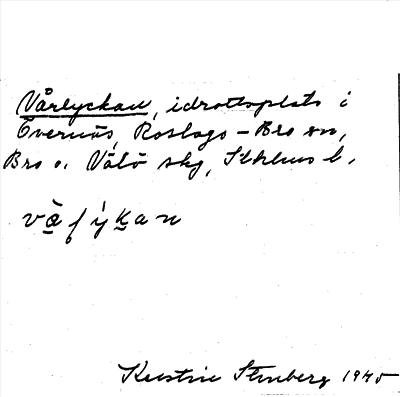 Vårlyckan, idrottsplats i
Övernäs, Roslags-Bro sn,
Bro o. Vätö skg, Sthlms l.
Kerstin Stenberg 1945